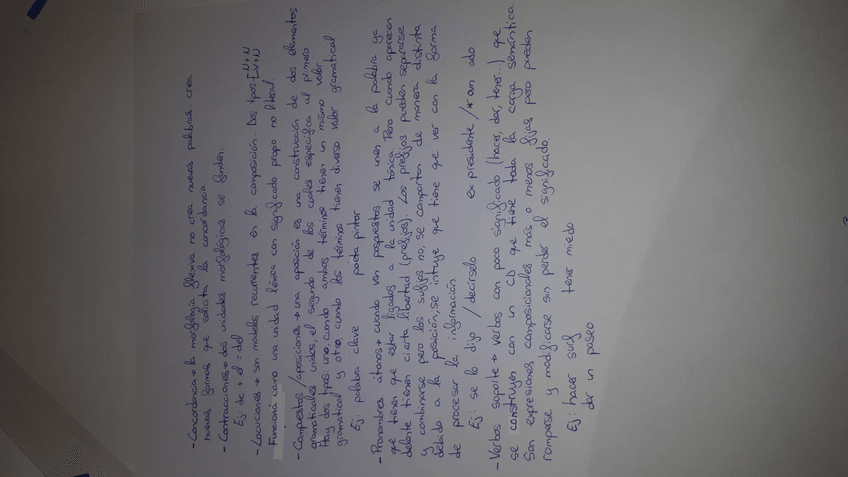 - Concordancia → la morfología flexiva no crea nuevas palabras, crea
nuevas formas que solicita la concordancia
- Contracciones → dos unidades morfológicas se funden.
Ej: de + el = del
- Locuciones → son modelos recurrentes en la composición. Dos tipos [N+N
V+N
Funciona como una unidad léxica con significado propio no literal.
- Compuestos / aposiciones → una aposición es una construcción de dos elementos
gramaticales unidos, el segundo de los cuales especifica al primero
Hay dos tipos: uno, cuando ambos términos tienen un mismo valor
gramatical y otro, cuando los términos tienen diverso valor gramatical
Ej: palabra clave poeta pintor
- Pronombres átonos → cuando van pospuestos se unen a la palabra ya
que tienen que estar ligados a la unidad tónica. Pero cuando aparecen
delante tienen cierta libertad (prefijos). Los prefijos pueden separarse
y combinarse pero los sufijos no, se comportan de manera distinta
debido a la posición, se intuye que tiene que ver con la forma
de procesar la información
Ej: se lo dijo / decírselo ex presidente / * am ado
- Verbos soporte → verbos con poco significado (hacer, dar, tener...) que
se construyen con un CD que tiene toda la carga semántica.
Son expresiones composicionales más o menos fijas pero pueden
romperse y modificarse sin perder el significado.
Ej: hacer surf tener miedo
dar un paseo